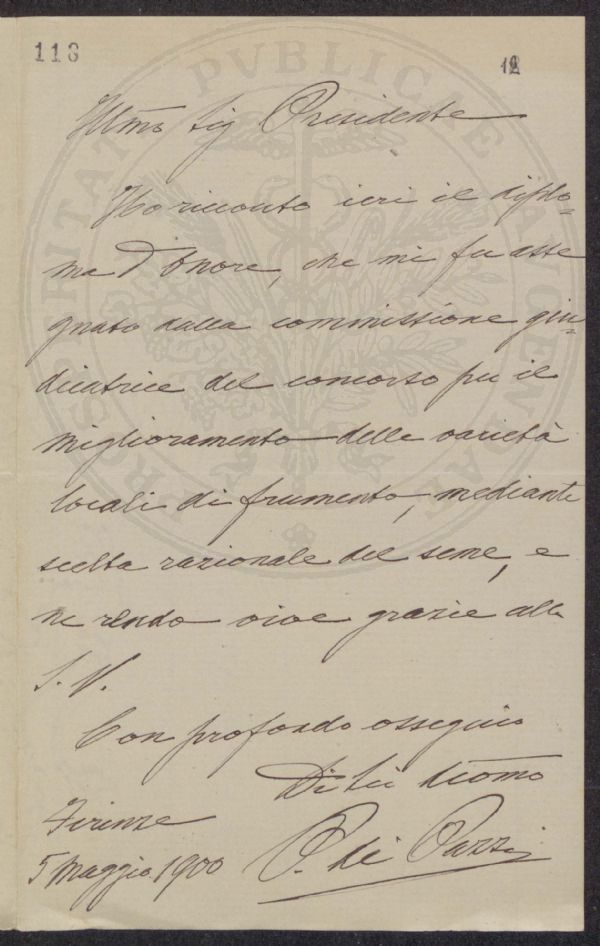 118
12
Illmo Sig Presidente
Ho ricevuto ieri il diplo-
ma d'Onore, che mi fu asse
gnato dalla commissione giu-
dicatrice del concorso per il
miglioramento delle varietà
locali di frumento, mediante
scelta razionale del seme, e
ne rendo vive grazie alla
S. V.
Con profondo ossequio
Di Lei
Firenze
5 Maggio 1900
P. de Pazzi
PROSPERITATI PVBLICAE AVGENDAE